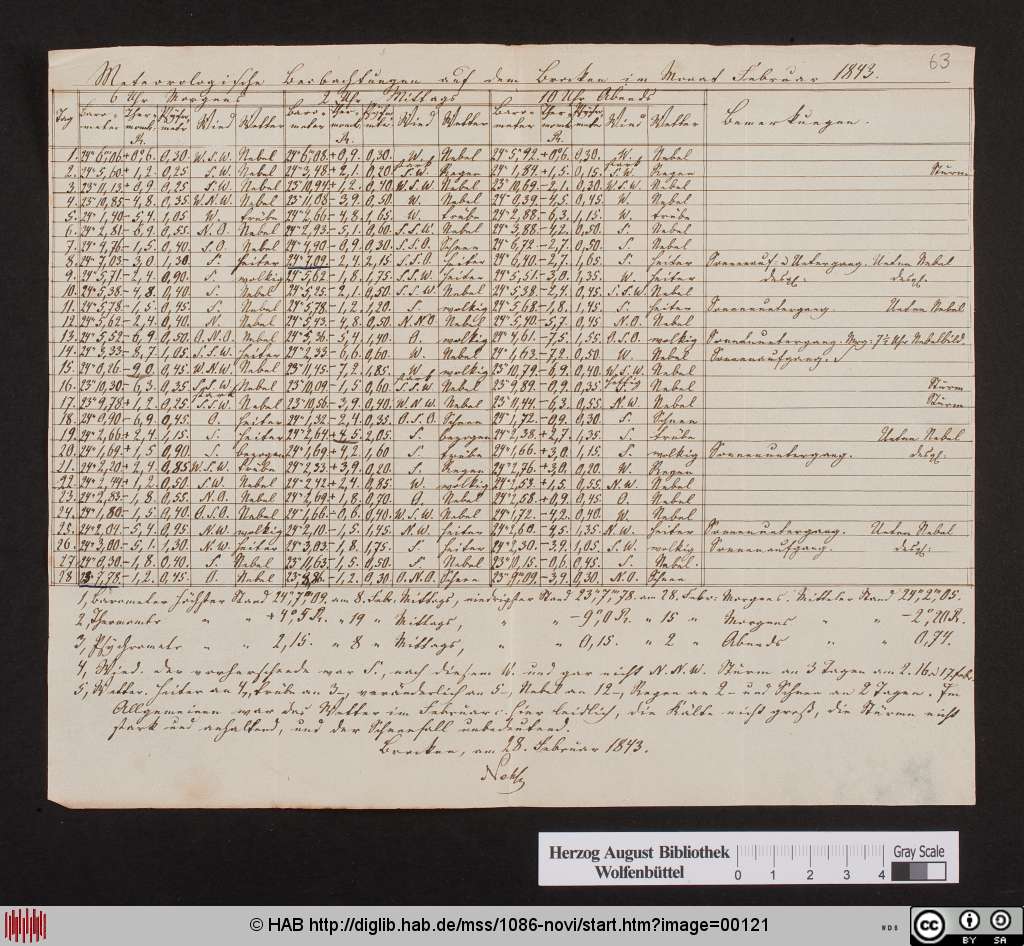 63
Meteorologische Beobachtungen auf dem Brocken im Monat Februar 1843.
6 Uhr Morgens 2 Uhr Mittags 10 Uhr Abends
Tag Barometer Wind Wetter Barometer Wind Wetter Barometer Wind Wetter Bemerkungen.
1. 24" 6,"06 + 0°6. 0,30. W.S.W. Nebel 24" 6,"08. + 0,9. 0,30. W. Nebel 24" 5,"92. + 0°6. 0,30. W. Nebel
2. 24" 5,60 + 1,2. 0,25 S.W. Nebel 24" 3,48 + 2,1. 0,20 S.W. Regen 24" 1,84 + 1,5. 0,15. S.W. Regen Sturm
3. 23" 11,13 + 0,9. 0,25 S.W. Nebel 23" 10,94 + 1,2. 0,10 W.S.W. Nebel 23" 10,69 - 2,1. 0,30. W.S.W. Nebel
4. 23" 10,85 - 4,8. 0,35 W.N.W. Nebel 23" 11,08 - 3,9. 0,50 W. Nebel 24" 0,39 - 4,5. 0,45. W. Nebel
5. 24" 1,40 - 5,4. 1,05 W. trübe 24" 2,66 - 4,8. 1,65. W. trübe 24" 2,88. - 6,3. 1,15. W. trübe
6. 24" 2,81 - 6,9. 0,55. N.O. Nebel 24" 2,93 - 5,1. 0,60. S.S.W. Nebel 24" 3,88. - 4,2. 0,50. S. Nebel
7. 24" 4,76 - 1,5. 0,40. S.O. Nebel 24" 4,90 - 0,9. 0,30. S.S.O. Schnee 24" 6,72 - 2,7. 0,50. S. Nebel
8. 24" 7,03 - 3,0 1,30. S. heiter 24" 7,09 - 2,4. 2,15 S.S.O. heiter 24" 6,40 - 2,7. 1,65. S. heiter Sonnenauf u Untergang. Unten Nebel
9. 24" 5,71 - 2,4. 0,90. S. wolkig 24" 5,62 - 1,8. 1,75. S.S.W. heiter 24" 5,51 - 3,0. 1,35. W. heiter desgl. desgl.
10. 24" 5,38 - 4,8. 0,40 S. Nebel 24" 5,25 - 2,1. 0,50 S.S.W. Nebel 24" 5,38 - 2,4. 0,45. S.S.W. Nebel
11. 24" 5,78 - 1,5. 0,45 S. Nebel 24" 5,78 - 1,2. 1,20. S. wolkig 24" 5,68 - 1,8. 1,45. S. heiter Sonnenuntergang. Unten Nebel
12. 24" 5,62 - 2,4. 0,40. N. Nebel 24" 5,43 - 4,8. 0,50. N.N.O. Nebel 24" 5,40 - 5,7. 0,45 N.O. Nebel
13. 24" 5,52 - 6,9. 0,50. O.N.O. Nebel 24" 5,36 - 5,4. 1,40. O. wolkig 24" 4,61. - 7,5. 1,55. O.S.O. wolkig Sonnenuntergang. Mrg: 7½ Uhr Nebelbild
14. 24" 3,33 - 8,7. 1,05. S.S.W. heiter 24" 2,33 - 6,6. 0,60. W. Nebel 24" 1,63 - 7,2. 0,50. W. Nebel Sonnenaufgang.
15. 24" 0,26 - 9,0. 0,45. W.N.W. Nebel 23" 11,45 - 7,2. 1,85. W. wolkig 23" 10,79 - 6,9. 0,40. W.S.W. Nebel
16. 23" 10,30 - 6,3. 0,35 S.S.W. Nebel 23" 10,09 - 1,5. 0,60. S.S.W. Nebel 23" 9,89 - 0,9. 0,35. Nebel Sturm
17. 23" 9,78 + 1,2. 0,25 S.S.W. Nebel 23" 10,56 - 3,9. 0,40. W.N.W. Nebel 23" 11,44 - 6,3. 0,55. N.W. Nebel Sturm
18. 24" 0,90 - 6,9. 0,45. O. heiter 24" 1,32 - 2,4. 0,35. O.S.O. Schnee 24" 1,72 - 0,9. 0,30. S. Schnee
19. 24" 2,66 + 2,4. 1,15. S. heiter 24" 2,64 + 4,5. 2,05. S. bezogen 24" 2,38. + 2,7. 1,35. S. trübe Unten Nebel
20. 24" 1,69. + 1,5. 0,90. S. bezogen 24" 1,69 + 4,2 1,60 S. trübe 24" 1,66. + 3,0. 1,15. S. wolkig Sonnenuntergang. desgl.
21. 24" 2,20 + 2,4. 0,85 W.S.W. trübe 24" 2,33 + 3,9. 0,20. S. Regen 24" 2,76. + 3,0. 0,20. W. Regen
22. 24" 2,44 + 1,2. 0,50. S.W. Nebel 24" 2,42 + 2,4. 0,85. W. wolkig 24" 2,53. + 1,5. 0,55. N.W. Nebel
23. 24" 2,83 - 1,8. 0,55. N.O. Nebel 24" 2,69 + 1,8. 0,70. O. Nebel 24" 2,58. + 0,9. 0,45 O. Nebel
24. 24" 1,80 - 1,5. 0,40. O.S.O. Nebel 24" 1,66 - 0,6. 0,40. W.S.W. Nebel 24" 1,72 - 4,2. 0,40. W. Nebel
25. 24" 2,04 - 5,4. 0,95. N.W. wolkig 24" 2,10 - 1,5. 1,45. N.W. heiter 24" 2,60 - 4,5. 1,35. N.W. heiter Sonnenuntergang. Unten Nebel
26. 24" 3,00 - 5,1. 1,30. N.W. heiter 24" 3,03 - 1,8. 1,75. S. heiter 24" 2,30 - 3,9. 1,05. S.W. wolkig Sonnenaufgang. desgl:
27. 24" 0,30 - 1,8. 0,40. S. Nebel 23" 11,63 - 1,5. 0,50. S. Nebel 23" 10,15. - 0,6. 0,45. S. Nebel.
28. 23" 7,78 - 1,2. 0,45. O. Nebel - 1,2. 0,30 O.N.O. Schnee 23" 9,"09 - 3,9. 0,30. N.O. Schnee
1, Barometer höchster Stand 24", 7,"09. am 8. Febr. Mittags, niedrigster Stand 23", 7,"78. am 28. Febr: Morgens. Mittler Stand 24", 2,"05.
2, Thermometr " " + 4°, 5 R. " 19 " Mittags, " " - 9°, 0 R. " 15 " Morgens " " - 2°, 20 R.
3, Psychrometr " " 2,15. " 8 " Mittags, " " 0,15. " 2 " Abends " " 0,74.
4, Wind. der vorherschende war S., nach diesem W. und gar nicht N.N.W. Sturm an 3 Tagen am 2. 16. u 17. Febr.
5, Wetter. heiter an 4, trübe an 3-, veränderlich an 5-, Nebel an 12-, Regen an 2- und Schnee an 2 Tagen. Im
Allgemeinen war das Wetter im Februar c. hier leidlich, die Kälte nicht groß, die Stürme nicht
stark und anhaltend, und der Schneefall unbedeutend.
Brocken, am 28. Februar 1843.
Herzog August Bibliothek
Wolfenbüttel
0 1 2 3 4
Gray Scale
© HAB http://diglib.hab.de/mss/1086-novi/start.htm?image=00121
WDB
cc BY SA